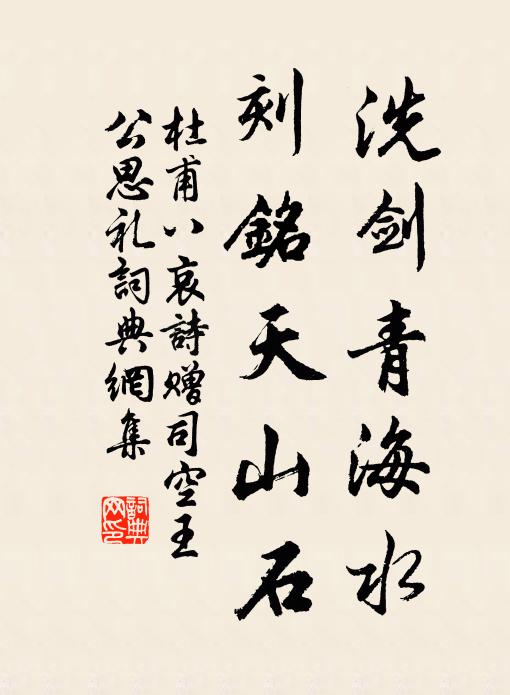 洗剑青海水
刻銘天山石
杜甫八哀詩赠司空王
公思礼詞典網集
詞典网印